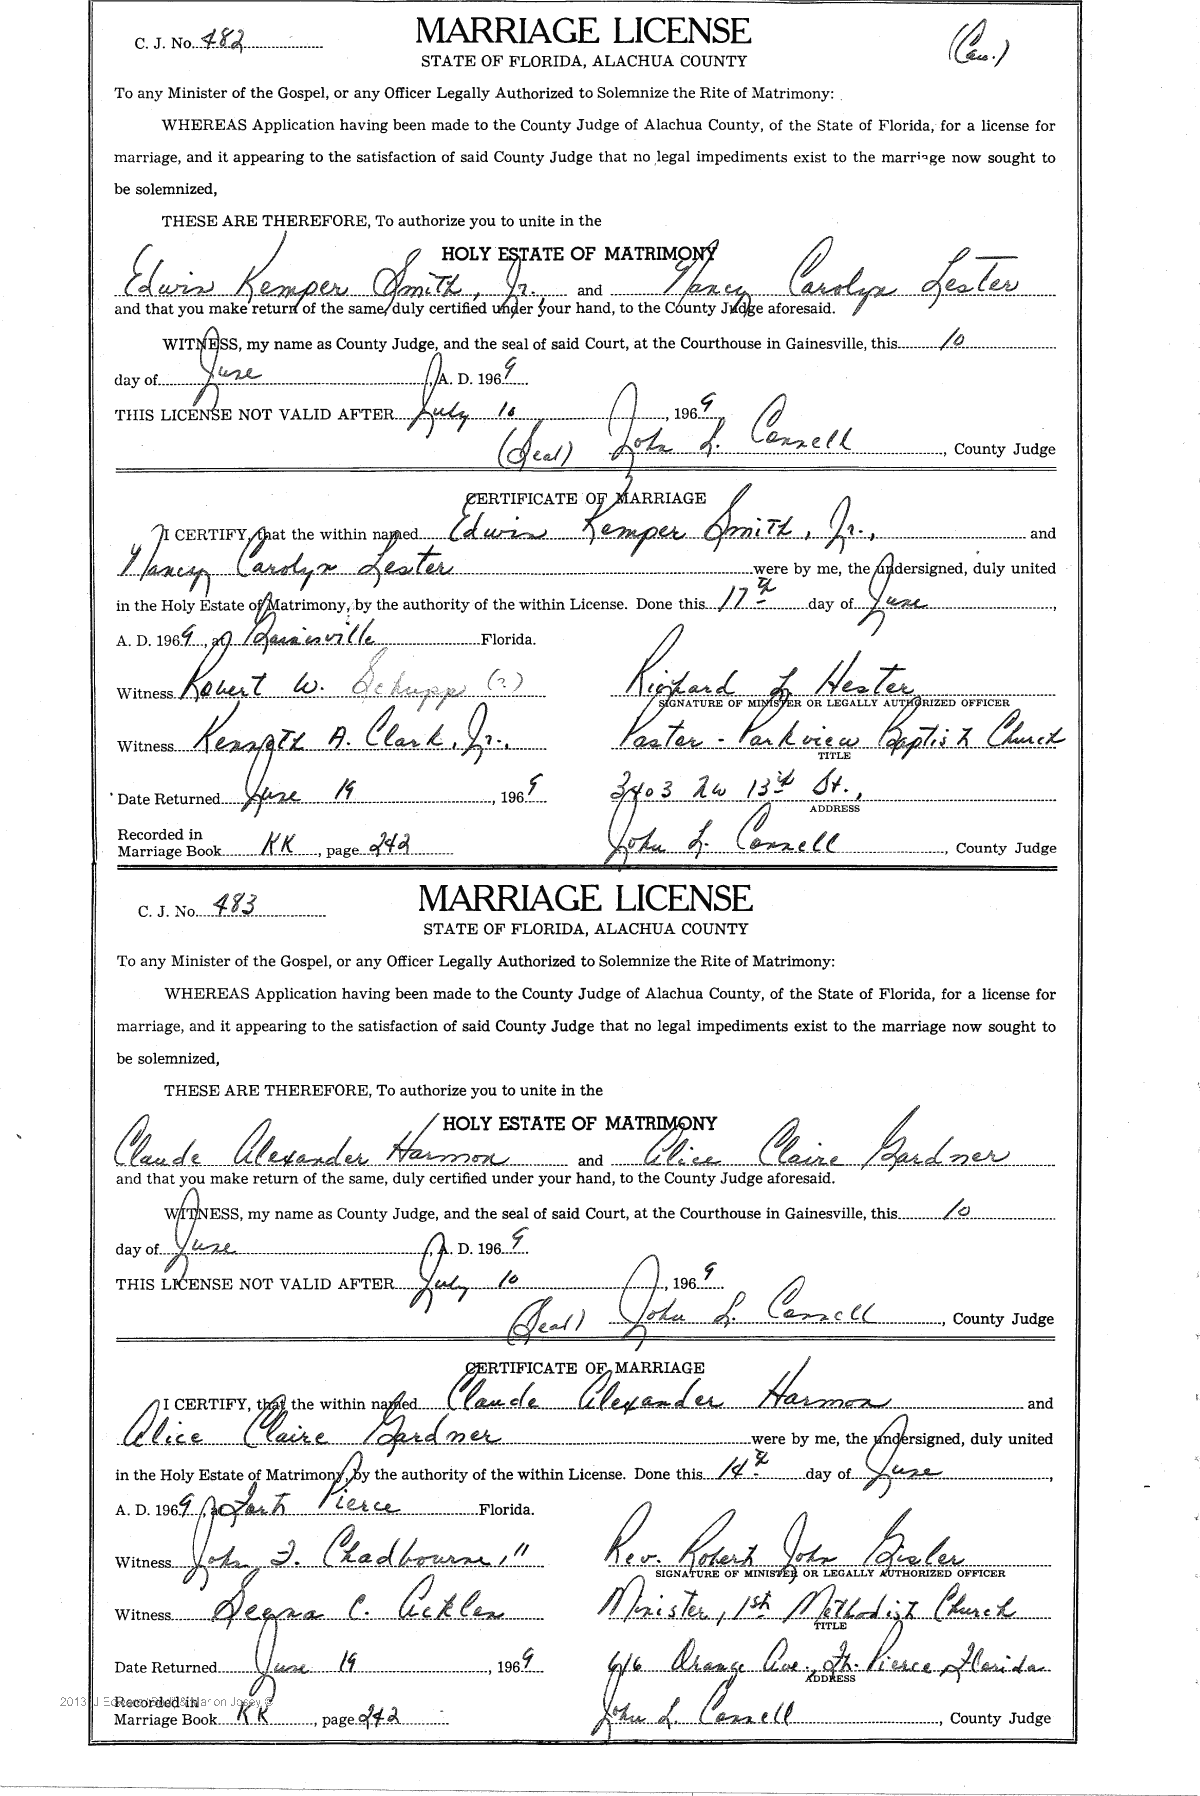 C. J. No. 482 MARRIAGE LICENSE (Cau.)
STATE OF FLORIDA, ALACHUA COUNTY
To any Minister of the Gospel, or any Officer Legally Authorized to Solemnize the Rite of Matrimony:
WHEREAS Application having been made to the County Judge of Alachua County, of the State of Florida, for a license for
marriage, and it appearing to the satisfaction of said County Judge that no legal impediments exist to the marriage now sought to
be solemnized,
THESE ARE THEREFORE, To authorize you to unite in the
HOLY ESTATE OF MATRIMONY
Edwin Kemper Smith, Jr., and Nancy Carolyn Lester
and that you make return of the same, duly certified under your hand, to the County Judge aforesaid.
WITNESS, my name as County Judge, and the seal of said Court, at the Courthouse in Gainesville, this 10
day of June, A. D. 1969
THIS LICENSE NOT VALID AFTER July 10, 1969
(Seal) John L. Connell, County Judge
CERTIFICATE OF MARRIAGE
I CERTIFY, that the within named Edwin Kemper Smith, Jr., and
Nancy Carolyn Lester were by me, the undersigned, duly united
in the Holy Estate of Matrimony, by the authority of the within License. Done this 17th day of June,
A. D. 1969, at Gainesville Florida.
Witness Robert W. Schupp (?) Richard L. Hester
SIGNATURE OF MINISTER OR LEGALLY AUTHORIZED OFFICER
Witness Kenneth A. Clark, Jr., Pastor - Parkview Baptist Church
TITLE
Date Returned June 19, 1969 3403 NW 13th St.,
ADDRESS
Recorded in
Marriage Book KK, page 242 John L. Connell, County Judge
C. J. No. 483 MARRIAGE LICENSE
STATE OF FLORIDA, ALACHUA COUNTY
To any Minister of the Gospel, or any Officer Legally Authorized to Solemnize the Rite of Matrimony:
WHEREAS Application having been made to the County Judge of Alachua County, of the State of Florida, for a license for
marriage, and it appearing to the satisfaction of said County Judge that no legal impediments exist to the marriage now sought to
be solemnized,
THESE ARE THEREFORE, To authorize you to unite in the
HOLY ESTATE OF MATRIMONY
Claude Alexander Harmon and Alice Claire Gardner
and that you make return of the same, duly certified under your hand, to the County Judge aforesaid.
WITNESS, my name as County Judge, and the seal of said Court, at the Courthouse in Gainesville, this 10
day of June, A. D. 1969
THIS LICENSE NOT VALID AFTER July 10, 1969
(Seal) John L. Connell, County Judge
CERTIFICATE OF MARRIAGE
I CERTIFY, that the within named Claude Alexander Harmon and
Alice Claire Gardner were by me, the undersigned, duly united
in the Holy Estate of Matrimony, by the authority of the within License. Done this 14th day of June,
A. D. 1969, at Fort Pierce Florida.
Witness John F. Chadbourne, III Rev. Robert John Gisler
SIGNATURE OF MINISTER OR LEGALLY AUTHORIZED OFFICER
Witness C. Acklen Minister, 1st Methodist Church
TITLE
Date Returned June 19, 1969 616 Orange Ave., Ft. Pierce Florida
ADDRESS
Recorded in
Marriage Book KK, page 242 John L. Connell, County Judge